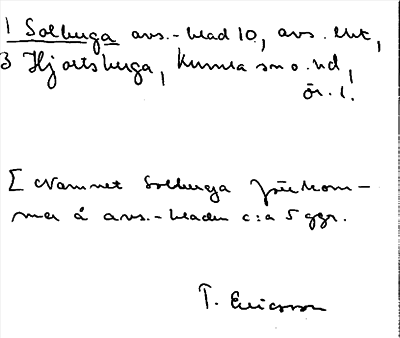 1 Solberga avs.-blad 10, avs. ekt,
3 Hjortsberga, Kumla sn o. hd,
ör. l.
[ Namnet Solberga förekom-
mer å avs.-bladen c:a 5 ggr.
T. Ericsson